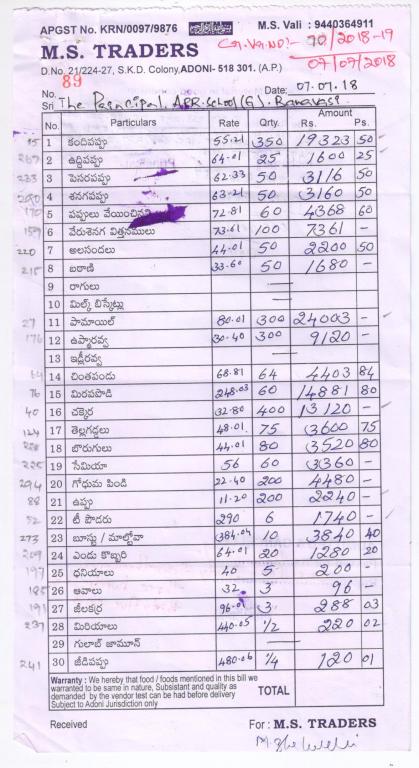 APGST No. KRN/0097/9876 M.S. Vali : 9440364911
M.S. TRADERS
70/2018-19
D.No. 21/224-27, S.K.D. Colony, ADONI- 518 301. (A.P.)
07/09/2018
No. 89 Date: 07.07.18
Sri The Principal, APR. School (G), Banavasi
No. Particulars Rate Qrty. Amount Rs. Ps.
85 1 కందిపప్పు 55.21 350 19323 50
2 ఉద్దిపప్పు 64.01 25 1600 25
223 3 పెసరపప్పు 62.33 50 3116 50
4 శనగపప్పు 63.21 50 3160 50
170 5 పప్పులు వేయించినవి 72.81 60 4368 60
6 వేరుశనగ విత్తనములు 73.61 100 7361 -
220 7 అలసందలు 44.01 50 2200 50
215 8 బఠాణి 33.60 50 1680 -
9 రాగులు —
10 మిల్క్ బిస్కేట్లు —
27 11 పామాయిల్ 80.01 300 24003 -
176 12 ఉప్మారవ్వ 30.40 300 9120 -
13 ఇడ్లీరవ్వ —
14 చింతపండు 68.81 64 4403 84
76 15 మిరపపొడి 248.03 60 14881 80
40 16 చక్కెర 32.80 400 13120 -
124 17 తెల్లగడ్డలు 48.01 75 3600 75
18 బొరుగులు 44.01 80 3520 80
225 19 సేమియా 56 60 3360 -
294 20 గోధుమ పిండి 22.40 200 4480 -
88 21 ఉప్పు 11.20 200 2240 -
52 22 టీ పౌడరు 290 6 1740 -
273 23 బూస్టు / మాల్టోవా 384.04 10 3840 40
209 24 ఎండు కొబ్బరి 64.01 20 1280 20
197 25 ధనియాలు 40 5 200 -
185 26 ఆవాలు 32. 3 96 -
191 27 జీలకర్ర 96.01 3 288 03
237 28 మిరియాలు 440.05 1/2 220 02
29 గులాబ్ జామూన్ —
241 30 జీడిపప్పు 480.06 1/4 120 01
Warranty : We hereby that food / foods mentioned in this bill we
warranted to be same in nature, Subsistant and quality as
demanded by the vendor test can be had before delivery
Subject to Adoni Jurisdiction only
TOTAL
Received For : M.S. TRADERS